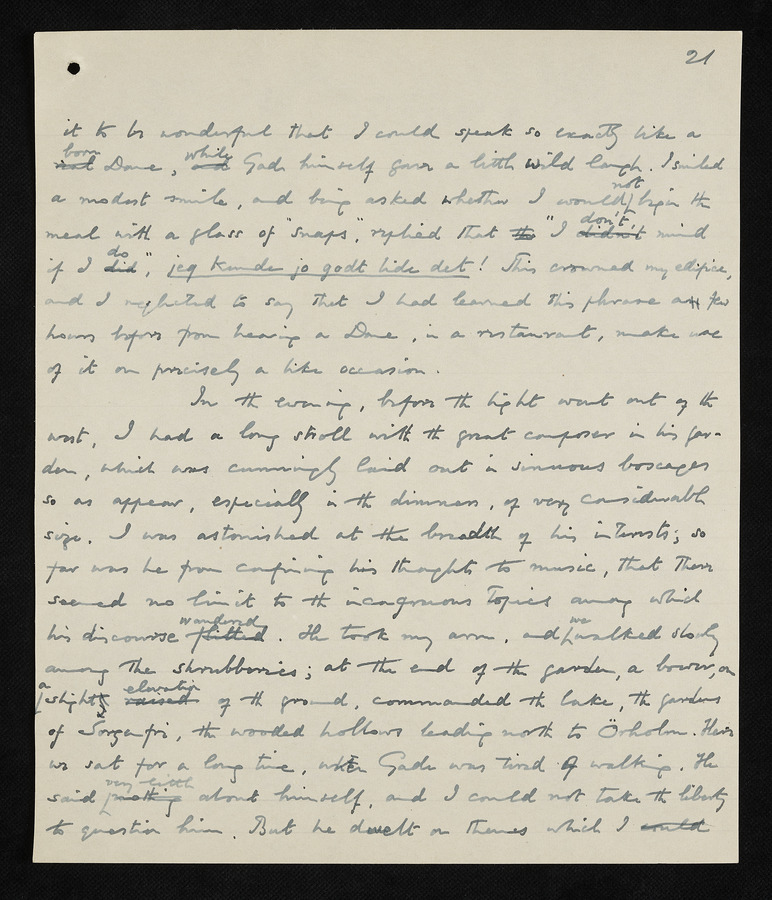 21
it to be wonderful that I could speak so exactly like a
born
real Dane, while and Gade himself gave a little wild laugh. I smiled
a modest smile, and being asked whether I would not begin the
meal with a glass of "snaps," replied that the "I didn't don't mind
if I did do", jeg kunde jo godt lide det! This crowned my edifice,
and I neglected to say that I had learned this phrase a few
hours before from hearing a Dane, in a restaurant, make use
of it on precisely a like occasion.
In the evening, before the light went out of the
west, I had a long stroll with the great composer in his gar-
den, which was cunningly laid out in sinuous boscages
so as appear, especially in the dimness, of very considerable
size. I was astonished at the breadth of his interests; so
far was he from confining his thoughts to music, that there
seemed no limit to the incongruous topics among which
his discourse flitted wandered. He took my arm, and we walked slowly
among the shrubberies; at the end of the garden, a bower, on
a slight raised elevation of the ground, commanded the lake, the gardens
of Sorgenfri, the wooded hollows leading north to Örholm. Here
we sat for a long time, when Gade was tired of walking. He
said nothing very little about himself, and I could not take the liberty
to question him. But he dwelt on themes which I could